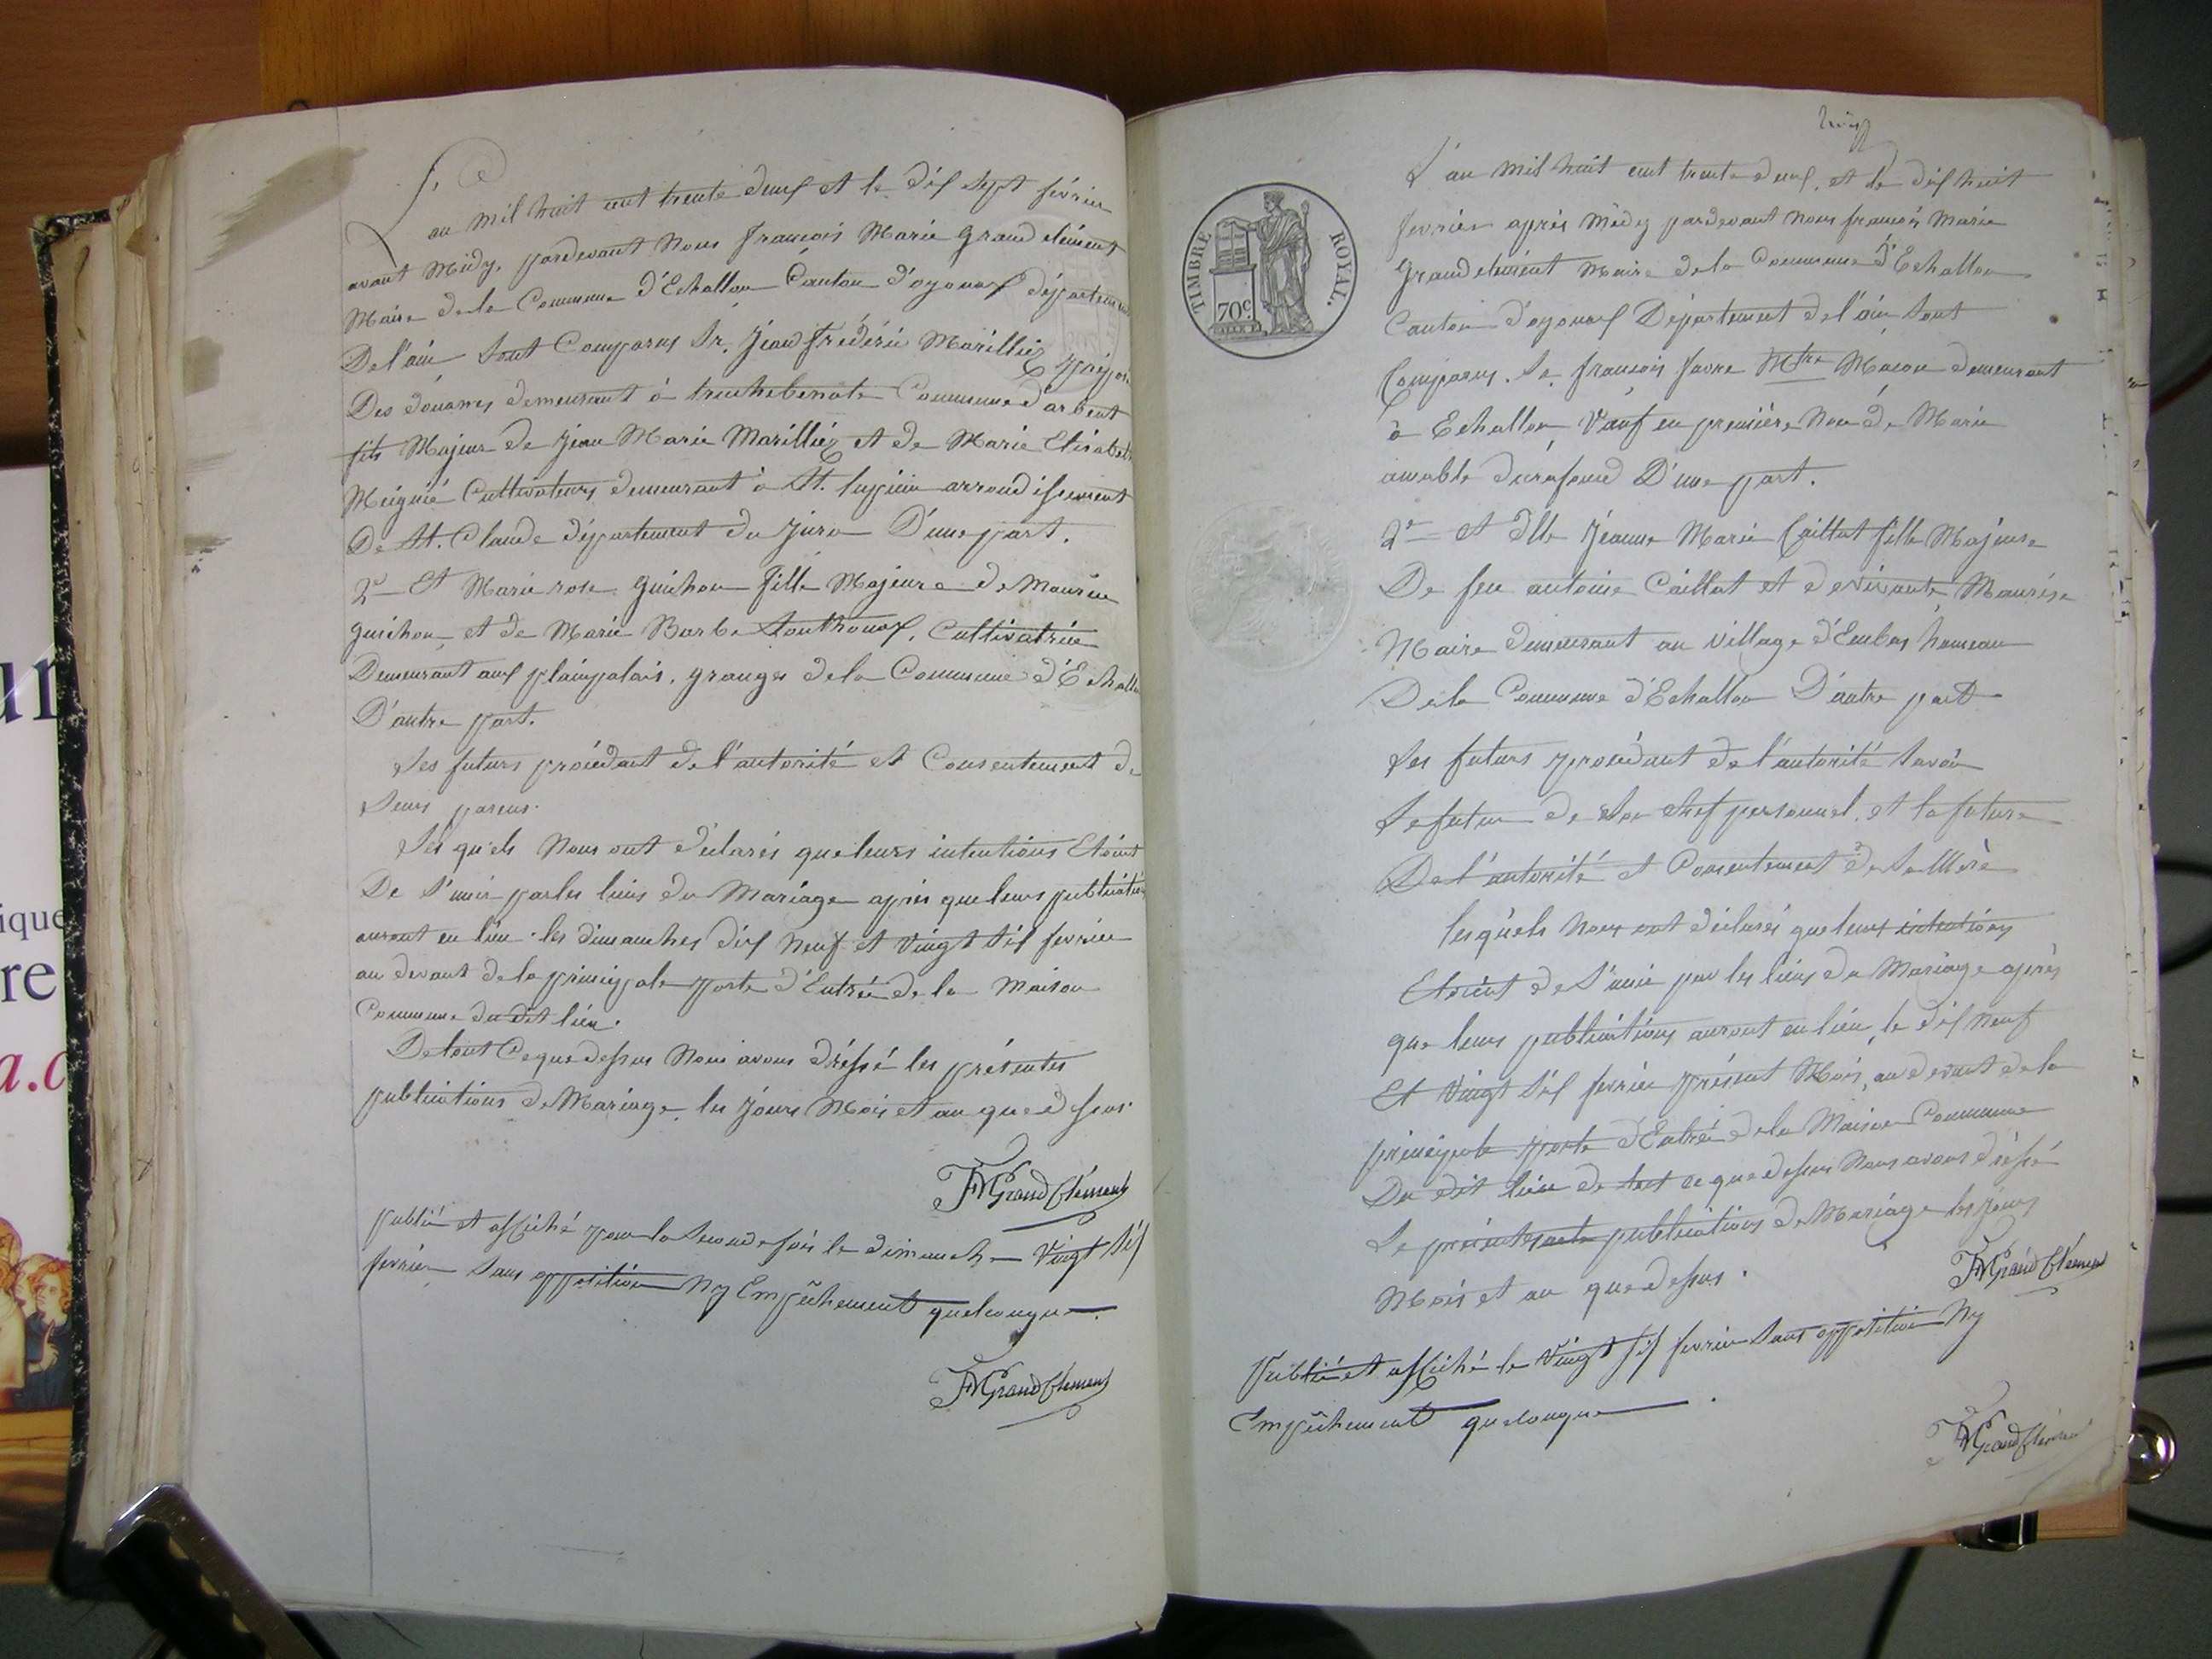 L'an mil huit cent trente deux et le dix sept février
avant Midy, pardevant Nous françois Marie Grandclément
Maire de la Commune d'Echallon Canton d'oyonax départem
De l'ain Sont Comparus Sr. Jean frédéric Marilliez
Des douanes demeurant à Commune d'arbent
fils Majeur de Jean Marie Marilliez et de Marie Elisabeth
Cultivateurs demeurant à St. lupicin arrondissement
De St. Claude département du Jura D'une part.
2e Et Marie rose guichon fille Majeure de Maurice
guichon et de Marie Barbe Cultivatrice
Demeurant aux plainpalais, granges de la Commune d'Echallo
D'autre part.
Les futurs procédant de l'autorité et Consentement de
Leurs parens.
Les quels Nous ont déclarés que leurs intentions Etoint
De S'unir par les liens du Mariage après que leurs publicatio
auront eu lieu les dimanches dix Neuf et Vingt Six fevrier
au devant de la principale porte d'Entrée de la Maison
Commune du dit lieu.
De tout Ce que dessus Nous avons dréssé les présentes
publications de Mariage, les jours Mois et an que dessus.
FMGrandClement
publié et affiché pour la Seconde fois le dimanche Vingt Six
fevrier Sans opposition Ny Empêchement quelconque.
FMGrandClement
L'an mil huit cent trente deux, et le dix huit
fevrier après Midy pardevant Nous françois Marie
Grandclement Maire de la Commune d'Echallon
Canton d'oyonax Département de l'ain, Sont
Comparus. Sr. françois favre Mtre Maçon demeurant
à Echallon, Vauf en première de Marie
D'une part.
2e et dlle Jeanne Marie Caillat fille Majeure
De feu antoine Caillat et de Vivante Maurise
Maire demeurant au Village d'Embas hameau
De la Commune d'Echallon D'autre part
Les futurs procédant de l'autorité Savoir
Le futur de Son Chef personnel, et la future
De l'autorité et Consentement de Sa Mère
les quels Nous ont déclarés que leurs intentions
Etoient de S'unir par les liens du Mariage après
que leurs publications auront eu lieu, le dix Neuf
Et Vingt Six fevrier présent Mois, au devant de la
principale porte d'Entrée de la Maison Commune
Du dit lieu de tout ce que dessus Nous avons dréssé
Le publications de Mariage les jours
Mois et an que dessus.
FMGrandClement
Publié et affiché le Vingt Six fevrier Sans opposition Ny
Empêchement quelconque.
FMGrandClement
TIMBRE ROYAL.
70c